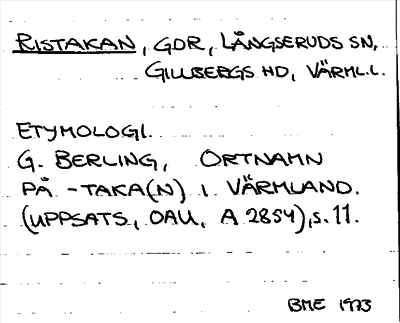 RISTAKAN, GDR, LÅNGSERUDS SN,
GILLBERGS HD, VÄRML.L.
ETYMOLOGI.
G. BERLING, ORTNAMN
PÅ -TAKA(N) I VÄRMLAND.
(UPPSATS, OAU, A 2854), S. 11.
BME 1973